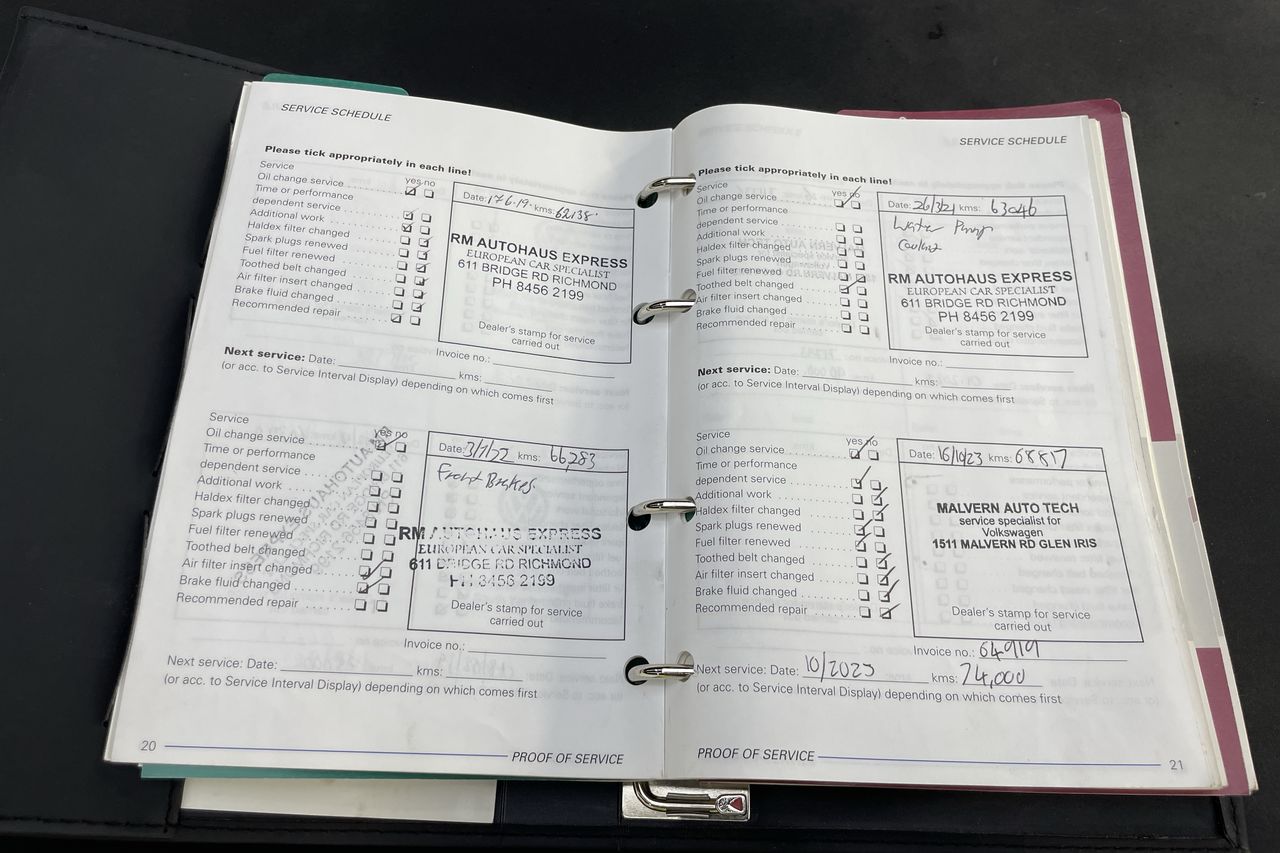 SERVICE SCHEDULE
Please tick appropriately in each line!
Service
yes no
Oil change service
Time or performance
dependent service
Additional work
Haldex filter changed
Spark plugs renewed
Fuel filter renewed
Toothed belt changed
Air filter insert changed
Brake fluid changed
Recommended repair
Date: 17.6.19. kms: 62138.
RM AUTOHAUS EXPRESS
EUROPEAN CAR SPECIALIST
611 BRIDGE RD RICHMOND
PH 8456 2199
Dealer's stamp for service
carried out
Invoice no.:
Next service: Date: kms:
(or acc. to Service Interval Display) depending on which comes first
Service
yes no
Oil change service
Time or performance
dependent service
Additional work
Haldex filter changed
Spark plugs renewed
Fuel filter renewed
Toothed belt changed
Air filter insert changed
Brake fluid changed
Recommended repair
Date: 3/7/22 kms: 66,283
Front Brakes
RM AUTOHAUS EXPRESS
EUROPEAN CAR SPECIALIST
611 BRIDGE RD RICHMOND
PH 8456 2199
Dealer's stamp for service
carried out
Invoice no.:
Next service: Date: kms:
(or acc. to Service Interval Display) depending on which comes first
20
PROOF OF SERVICE
SERVICE SCHEDULE
Please tick appropriately in each line!
Service
yes no
Oil change service
Time or performance
dependent service
Additional work
Haldex filter changed
Spark plugs renewed
Fuel filter renewed
Toothed belt changed
Air filter insert changed
Brake fluid changed
Recommended repair
Date: 26/3/21 kms: 63046
Water Pump
Coolant
RM AUTOHAUS EXPRESS
EUROPEAN CAR SPECIALIST
611 BRIDGE RD RICHMOND
PH 8456 2199
Dealer's stamp for service
carried out
Invoice no.:
Next service: Date: kms:
(or acc. to Service Interval Display) depending on which comes first
Service
yes no
Oil change service
Time or performance
dependent service
Additional work
Haldex filter changed
Spark plugs renewed
Fuel filter renewed
Toothed belt changed
Air filter insert changed
Brake fluid changed
Recommended repair
Date: 16/10/23 kms: 68817
MALVERN AUTO TECH
service specialist for
Volkswagen
1511 MALVERN RD GLEN IRIS
Dealer's stamp for service
carried out
Invoice no.: 64919
Next service: Date: 10/2025 kms: 74,000
(or acc. to Service Interval Display) depending on which comes first
PROOF OF SERVICE
21